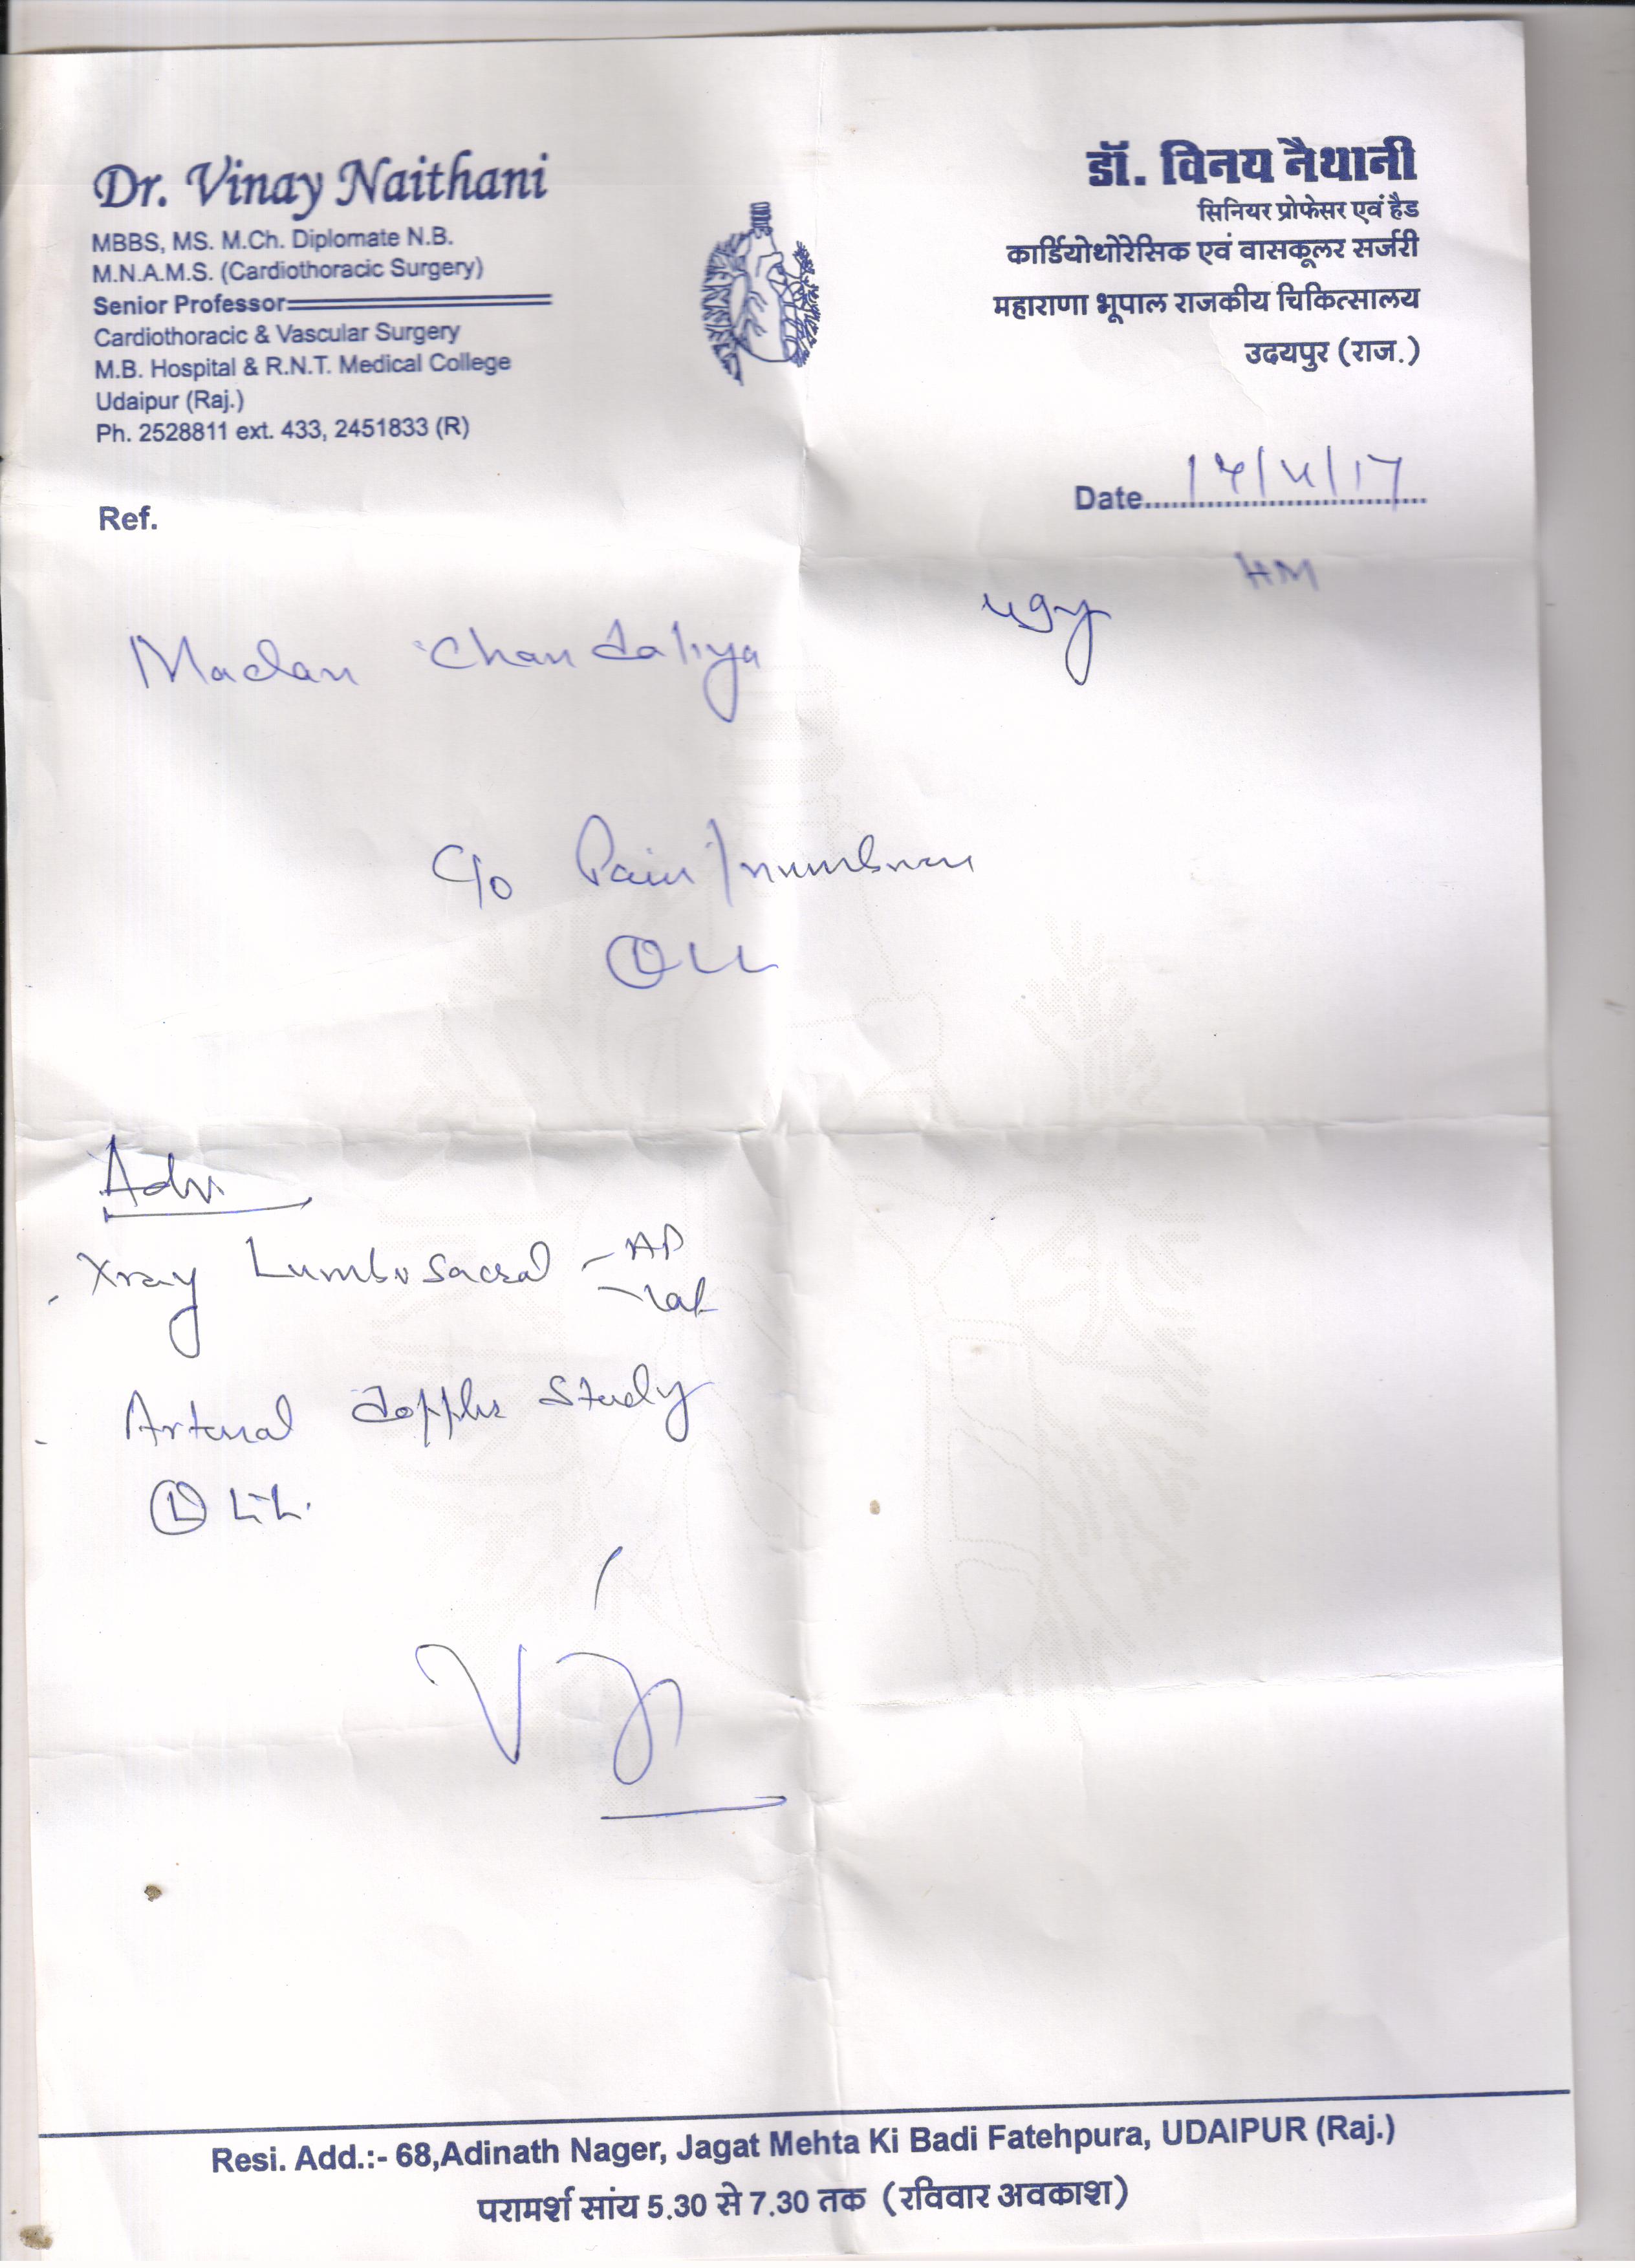 Dr. Vinay Naithani
MBBS, MS. M.Ch. Diplomate N.B.
M.N.A.M.S. (Cardiothoracic Surgery)
Senior Professor
Cardiothoracic & Vascular Surgery
M.B. Hospital & R.N.T. Medical College
Udaipur (Raj.)
Ph. 2528811 ext. 433, 2451833 (R)
डॉ. विनय नैथानी
सिनियर प्रोफेसर एवं हैड
कार्डियोथोरेसिक एवं वासकूलर सर्जरी
महाराणा भूपाल राजकीय चिकित्सालय
उदयपुर (राज.)
Date
Ref.
HM
Madan Chandaliya
C/o Pain/numbness
Ⓛ LL
Adv.
Xray Lumbosacral - AP
- Lat
Arterial doppler Study
Ⓛ L.L.
Resi. Add.:- 68,Adinath Nager, Jagat Mehta Ki Badi Fatehpura, UDAIPUR (Raj.)
परामर्श सांय 5.30 से 7.30 तक (रविवार अवकाश)